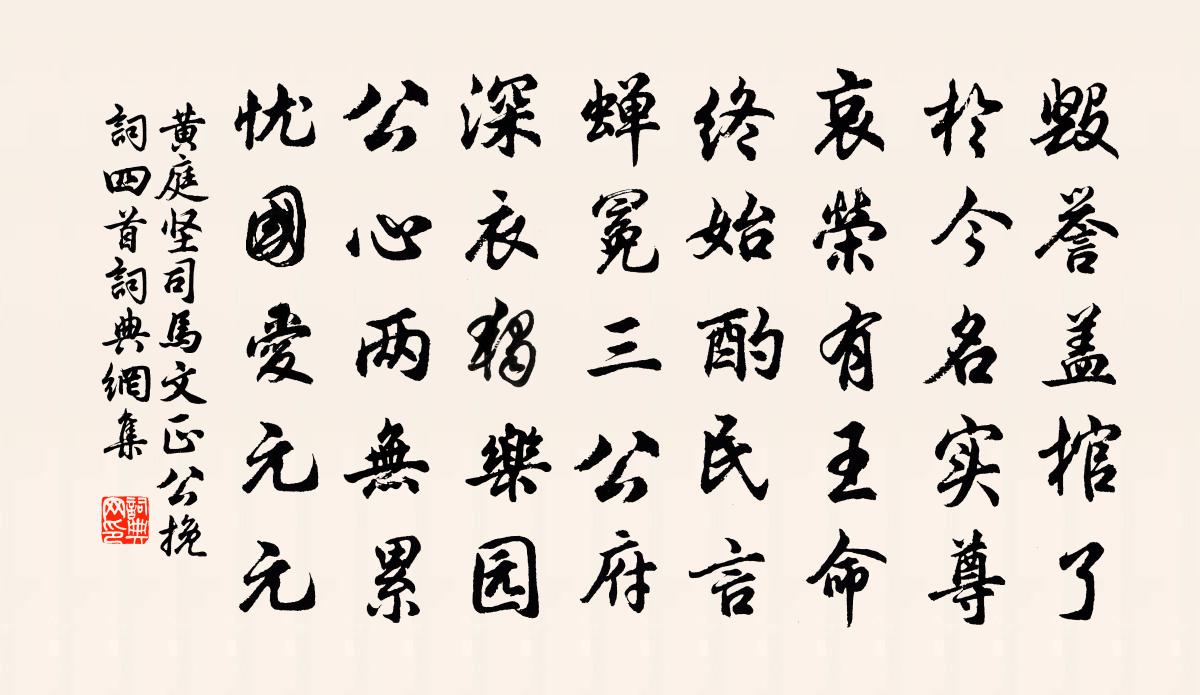 毁誉盖棺了
於今名实尊
哀榮有王命
终始酌民言
蝉冕三公府
深衣獨樂园
公心两無累
忧國愛元元
黄庭坚司馬文正公挽
詞四首詞典網集
詞典网印